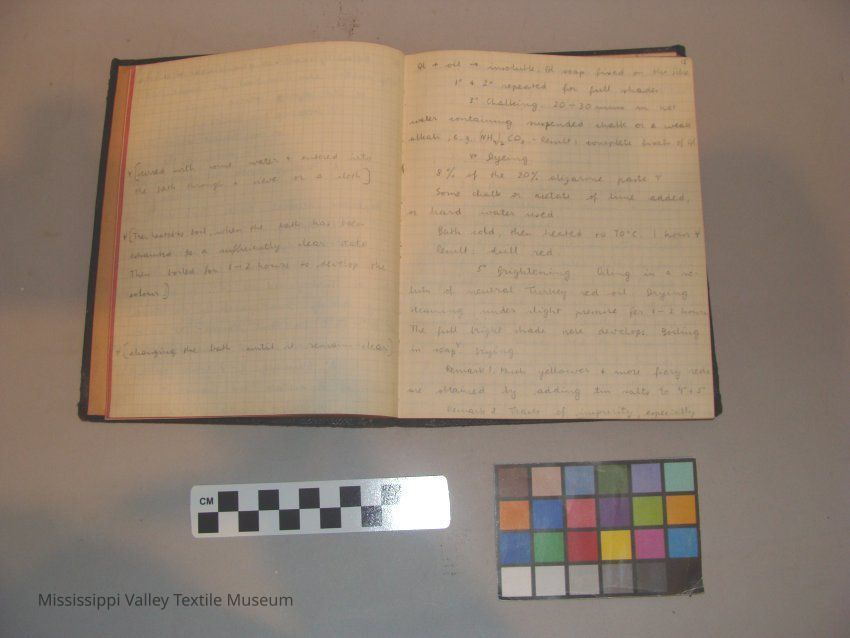 [stirred with some water + entered into
the bath through a sieve or a cloth]
[Then heated to boil, when the bath has been
exhausted to a sufficiently clear state
Then boiled for 1-2 hours to develop the
colour]
[changing the bath until it remains clear]
+ oil → insoluble. soap fixed on the fibre
1° + 2° repeated for full shades
3° Chalking. 20-30 mins in hot
water containing suspended chalk or a weak
alkali, e.g. NH4)2 CO3. Result: complete of
4° Dyeing
8% of the 20% alizarine paste
Some chalk or acetate of lime added,
or hard water used
Bath cold, then heated to 70°C. 1 hour
Result: dull red
5° Brightening Oiling in a so-
lution of neutral Turkey red oil. Drying
Steaming under slight pressure for 1-2 hours
The full bright shade here develops. Boiling
in soap. Drying
Remark 1. Much yellower + more fiery reds
are obtained by adding tin salts to 4° + 5°
Remark 2 Traces of impurity, especially
CM
Mississippi Valley Textile Museum